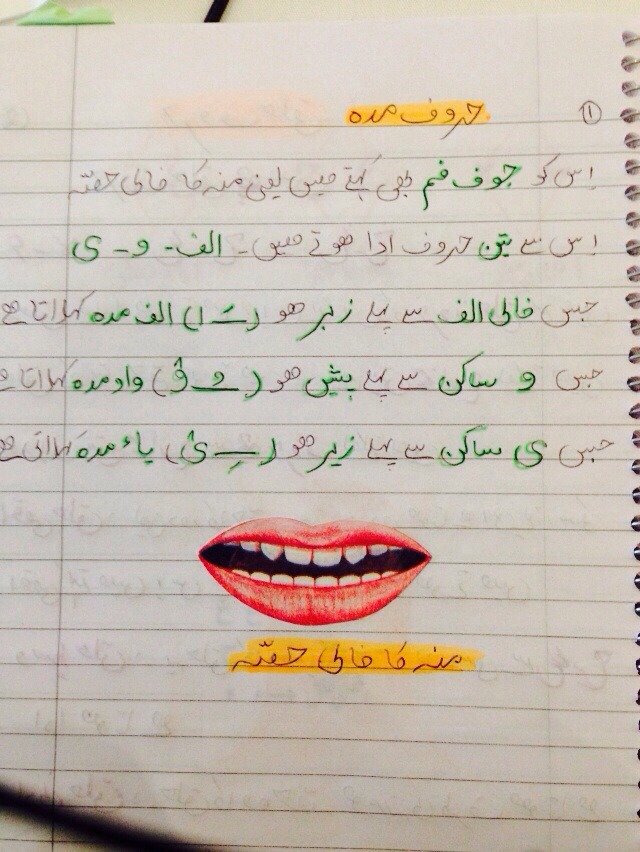 ① حروف مدہ
اِس کو جوف فم بھی کہتے ھیں یعنی منہ کا خالی حصّہ
اِس سے تین حروف ادا ھوتے ھیں۔ الف - و - ی
جس خالی الف سے پہلے زبر ھو (ـَ ا) الف مدہ کہلاتا ھے
جس و ساکن سے پہلے پیش ھو (ـُ وْ) واو مدہ کہلاتا ھے
جس ی ساکن سے پہلے زیر ھو (ـِ یْ) یاء مدہ کہلاتی ھے
منہ کا خالی حصّہ